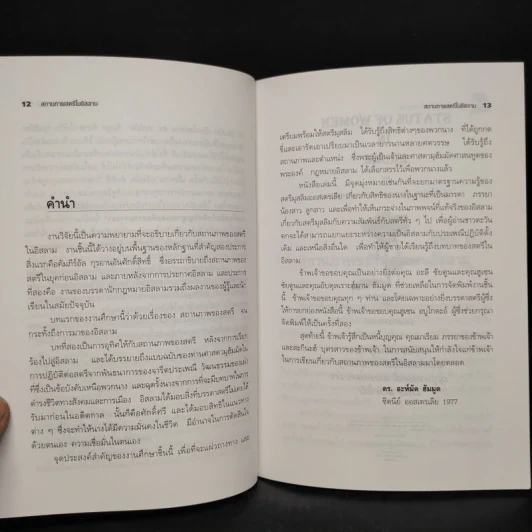 12 สถานภาพสตรีในอิสลาม
คำนำ
งานวิจัยนี้เป็นความพยายามที่จะอธิบายเกี่ยวกับสถานภาพของสตรี
ในอิสลาม งานชิ้นนี้ได้วางอยู่บนพื้นฐานของหลักฐานที่สำคัญสองประการ
สิ่งแรกคือคัมภีร์อัล กุรอานอันศักดิ์สิทธิ์ ซึ่งอรรถาธิบายถึงสถานภาพของสตรี
ในยุคก่อนอิสลาม และภายหลังจากการประกาศอิสลาม และประการ
ที่สองคือ งานของบรรดานักกฎหมายอิสลามรวมถึงผลงานของผู้รู้และนัก
เขียนในสมัยปัจจุบัน
บทแรกของงานศึกษานี้ว่าด้วยเรื่องของ สถานภาพของสตรี จน
กระทั่งถึงการมาของอิสลาม
บทที่สองเป็นการอุทิศให้กับสถานภาพของสตรี หลังจากการเรียก
ร้องไปสู่อิสลาม และได้บรรยายถึงแบบฉบับของท่านศาสดามุฮัมมัดใน
การปฏิบัติต่อสตรีจากพันธนาการของจารีตประเพณี วัฒนธรรมของเผ่า
ที่ซึ่งเป็นข้อบังคับเหนือพวกนาง และฉุดรั้งนางจากการที่จะมีบทบาทในการ
ดำรงชีวิตทางสังคมและการเมือง อิสลามได้มอบสิ่งที่บรรดาสตรีไม่เคยได้
รับมาก่อนในอดีตกาล นั่นก็คือศักดิ์ศรี และได้มอบสิทธิในแนวทาง
ต่าง ๆ ซึ่งจะทำให้นางได้มีความมั่นคงในชีวิต มีอำนาจในการตัดสินใจ
ด้วยตนเอง ความเชื่อมั่นในตนเอง
จุดประสงค์สำคัญของงานศึกษาชิ้นนี้ เพื่อที่จะแผ้วถางทาง และ
สถานภาพสตรีในอิสลาม 13
เตรียมพร้อมให้สตรีมุสลิม ได้รับรู้ถึงสิทธิต่างๆของพวกนาง ที่ได้ถูกกด
ขี่และเอารัดเอาเปรียบมาเป็นเวลายาวนานหลายศตวรรษ ได้รับรู้ถึง
สถานภาพและตำแหน่ง ซึ่งพระผู้เป็นเจ้าและศาสดามุฮัมมัดศาสนทูตของ
พระองค์ กฎหมายอิสลาม ได้เลือกสรรไว้เพื่อพวกนางแล้ว
หนังสือเล่มนี้ มีจุดมุ่งหมายเช่นกันที่จะยกมาตรฐานความรู้ของ
สตรีมุสลิมออสเตรเลีย เกี่ยวกับสิทธิของนางในฐานะที่เป็นมารดา ภรรยา
น้องสาว ลูกสาว และเพื่อทำให้เห็นกระจ่างในภาพพจน์ที่แท้จริงของอิสลาม
สำหรับสตรีมุสลิมกับความสัมพันธ์กับสตรีทั่ว ๆ ไป เพื่อผู้อ่านชาวตะวัน
ตกจะได้สามารถแยกแยะระหว่างความเป็นอิสลามกับประเพณีปฏิบัติดั้ง
เดิม และเหนือสิ่งอื่นใด เพื่อทำให้ผู้ชายได้เรียนรู้ถึงบทบาทของสตรีใน
อิสลาม
ข้าพเจ้าขอขอบคุณเป็นอย่างยิ่งต่อคุณ
นี้ ข้าพเจ้าขอขอบคุณทุก ๆ ท่าน และโดยเฉพาะอย่างยิ่งบรรดาสตรีผู้ซึ่ง
ให้การยกย่องหนังสือนี้ ข้าพเจ้าขอขอบคุณ
จัดพิมพ์ให้เป็นครั้งที่สอง
สุดท้ายนี้ ข้าพเจ้ารู้สึกเป็นหนี้บุญคุณ คุณมาเรียม ภรรยาของข้าพเจ้า
บุตรสาวของข้าพเจ้า ในการสนับสนุนให้กำลังใจแก่ข้าพเจ้า
ในการเขียนเกี่ยวกับสถานภาพของสตรีในอิสลามมาโดยตลอด
ดร. อะห์มัด ฮัมมูด
ซิดนีย์ ออสเตรเลีย 1977